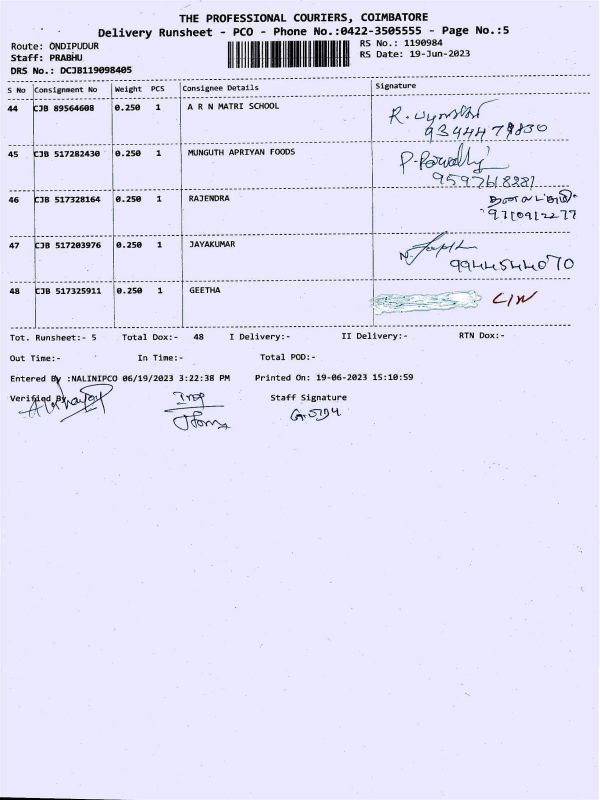 THE PROFESSIONAL COURIERS, COIMBATORE
Delivery Runsheet - PCO - Phone No.:0422-3505555 - Page No.:5
Route: ONDIPUDUR RS No.: 1190984
Staff: PRABHU RS Date: 19-Jun-2023
DRS No.: DCJB119098405
S No Consignment No Weight PCS Consignee Details Signature
44 CJB 89564608 0.250 1 A R N MATRI SCHOOL R.
45 CJB 517282430 0.250 1 MUNGUTH APRIYAN FOODS
9597618281
46 CJB 517328164 0.250 1 RAJENDRA
9710912277
47 CJB 517203976 0.250 1 JAYAKUMAR
9944544070
48 CJB 517325911 0.250 1 GEETHA
Tot. Runsheet:- 5 Total Dox:- 48 I Delivery:- II Delivery:- RTN Dox:-
Out Time:- In Time:- Total POD:-
Entered By :NALINIPCO 06/19/2023 3:22:38 PM Printed On: 19-06-2023 15:10:59
Verified By Staff Signature